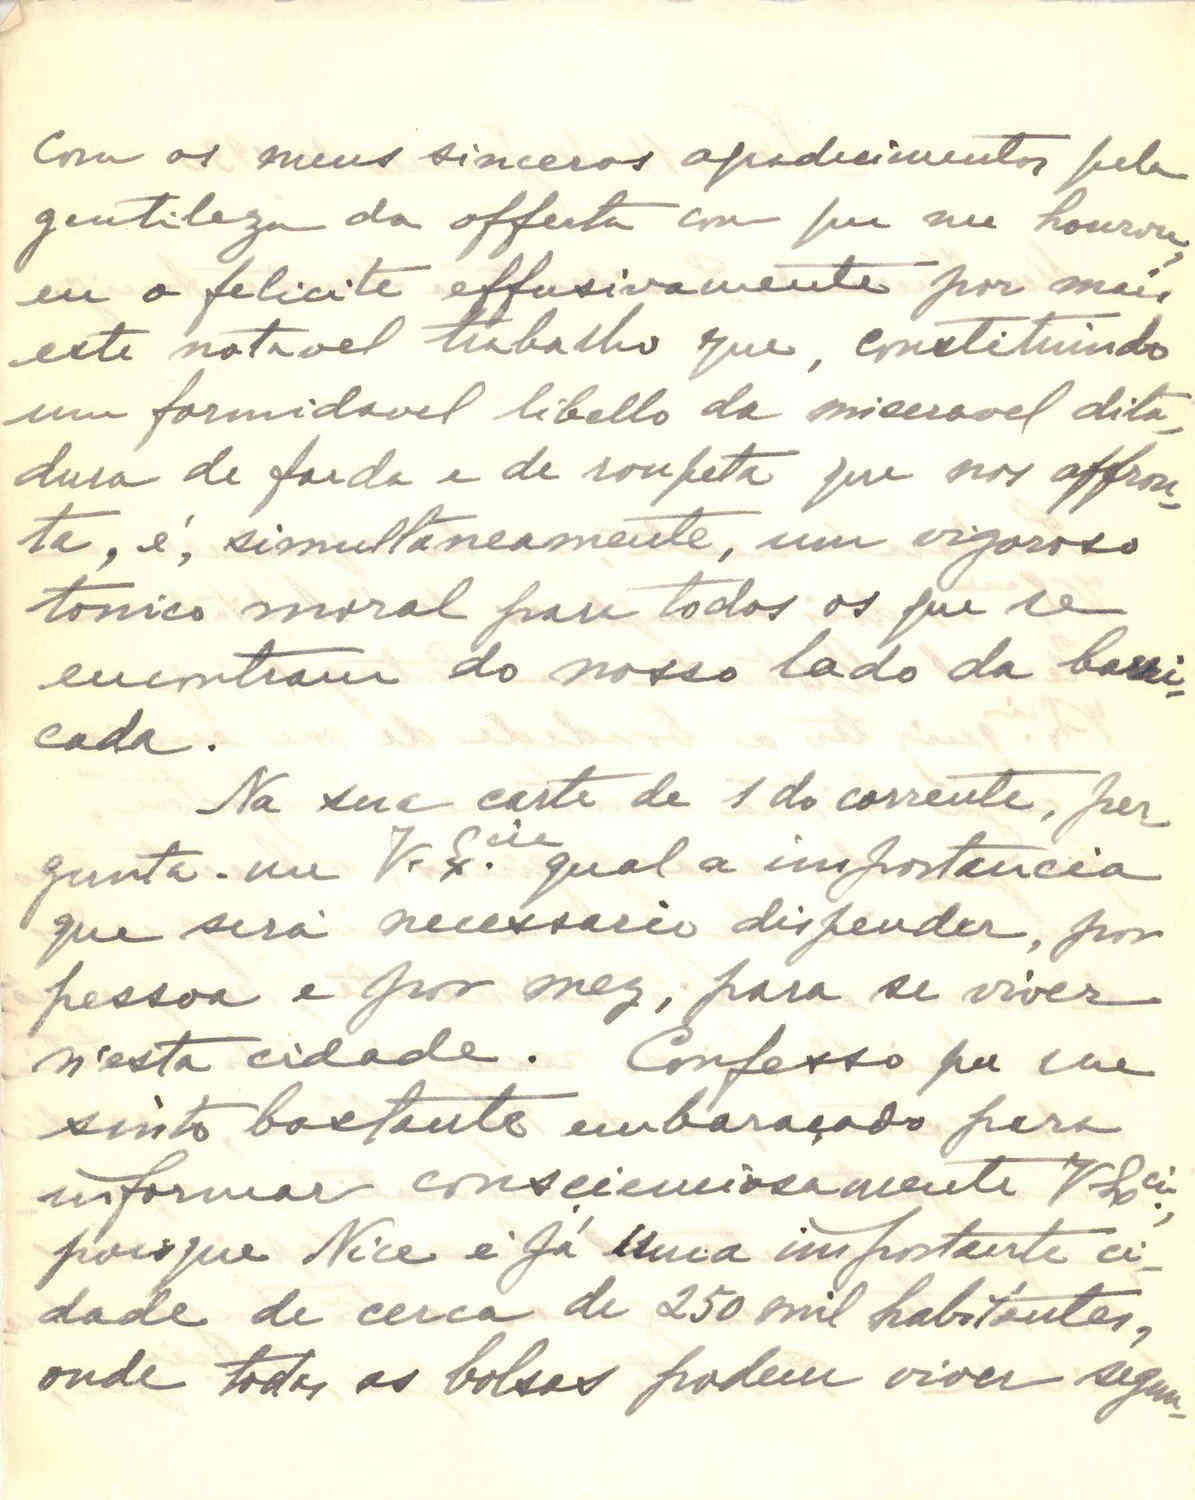 Com os meus sinceros agradecimentos pela
gentileza da offerta com que me honrou,
eu o felicito effusivamente por mais
este notavel trabalho que, constituindo
um formidavel libello da miseravel dita-
dura de farda e de roupeta que nos affron-
ta, é, simultaneamente, um vigoroso
tonico moral para todos os que se
encontram do nosso lado da barri-
cada.
Na sua carta de 1 do corrente, per
gunta-me V. Ex.cia qual a importancia
que será necessario dispender, por
pessoa e por mez, para se viver
n'esta cidade. Confesso que me
sinto bastante embaraçado para
informar conscienciosamente V Ex.cia,
porque Nice é já uma importante ci-
dade de cerca de 250 mil habitantes,
onde todas as bolsas podem viver segun-